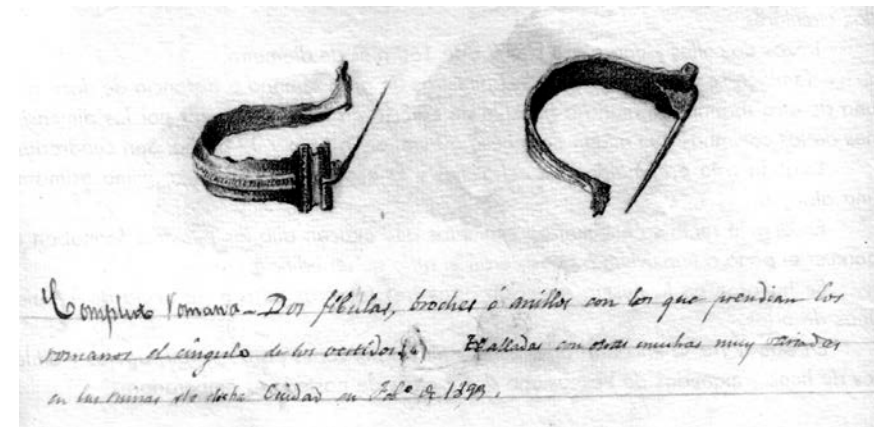 Complux Romana – Dos fíbulas, broches ó anillos con los que prendian los
romanos el cíngulo de los vestidos Halladas con otras muchas muy variadas
en las ruinas de dicha Ciudad en Feb.º de 1893.